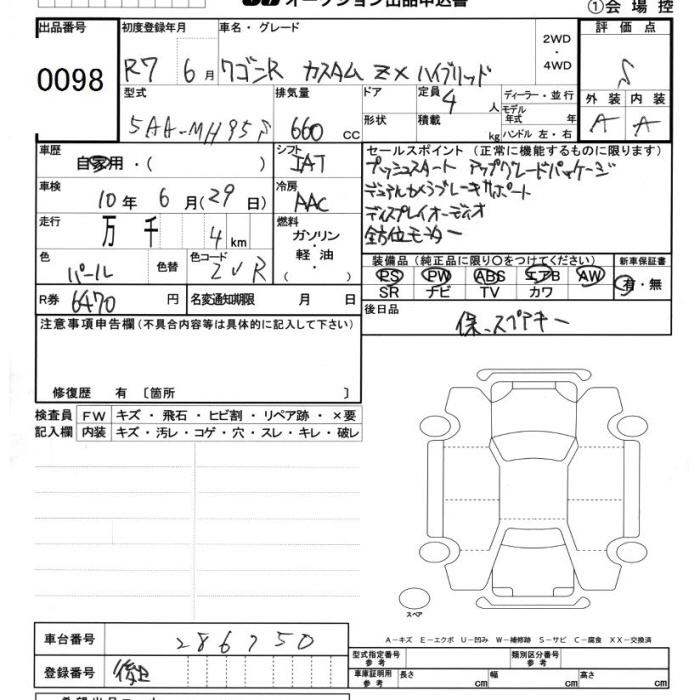 オークション出品申込書
①会場控
出品番号 初度登録年月 車名・グレード 評価点
0098 R7 6月 ワゴンR カスタム ZX ハイブリッド 2WD・4WD S
型式 排気量 ドア 定員 4人 ディーラー・並行 外装 内装
5AA-MH95S 660cc 形状 積載 kg モデル年式 年 ハンドル 左・右 A A
車歴 自家用・( ) シフト IAT セールスポイント(正常に機能するものに限ります)
プッシュスタート アップグレードパッケージ
車検 10年6月(29日) 冷房 AAC
デュアルカメラブレーキサポート
ディスプレイオーディオ
走行 万 千 4km 燃料 ガソリン・軽油・( )
全方位モニター
色 パール 色替 色コード ZVR
装備品(純正品に限り○をつけてください) 新車保証書
PS PW ABS エアB AW 有・無
SR ナビ TV カワ
R券 6470円 名変通知期限 月 日
後日品
保、スペアキー
注意事項申告欄(不具合内容等は具体的に記入して下さい)
修復歴 有 〔箇所 〕
検査員 FW キズ・飛石・ヒビ割・リペア跡・×要
記入欄 内装 キズ・汚レ・コゲ・穴・スレ・キレ・破レ
スペア
A-キズ E-エクボ U-凹み W-補修跡 S-サビ C-腐食 XX-交換済
車台番号 286750
型式指定番号 参考 類別区分番号 参考
登録番号 後日
車庫証明用 参考 長さ cm 幅 cm 高さ cm